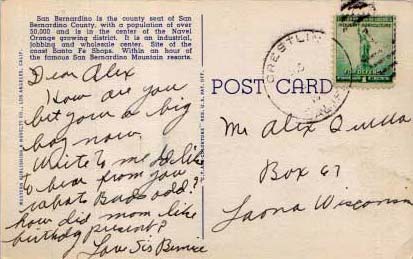 San Bernardino is the county seat of San
Bernardino County, with a population of over
50,000 and is in the center of the Navel
Orange growing district. It is an industrial,
jobbing and wholesale center. Site of the
coast Santa Fe Shops. Within an hour of
the famous San Bernardino Mountain resorts.
Dear Alex
How are you
but your a big
boy now.
Write to me I'd like
to hear from you
whats Buds add?
how did mom like
birthday present?
Love Sis Bernice
POST CARD
CRESTLINE
CALIF.
FOR DEFENSE
Mr Alix
Box 67
Laona Wisconsin
WESTERN PUBLISHING & NOVELTY CO., LOS ANGELES, CALIF.